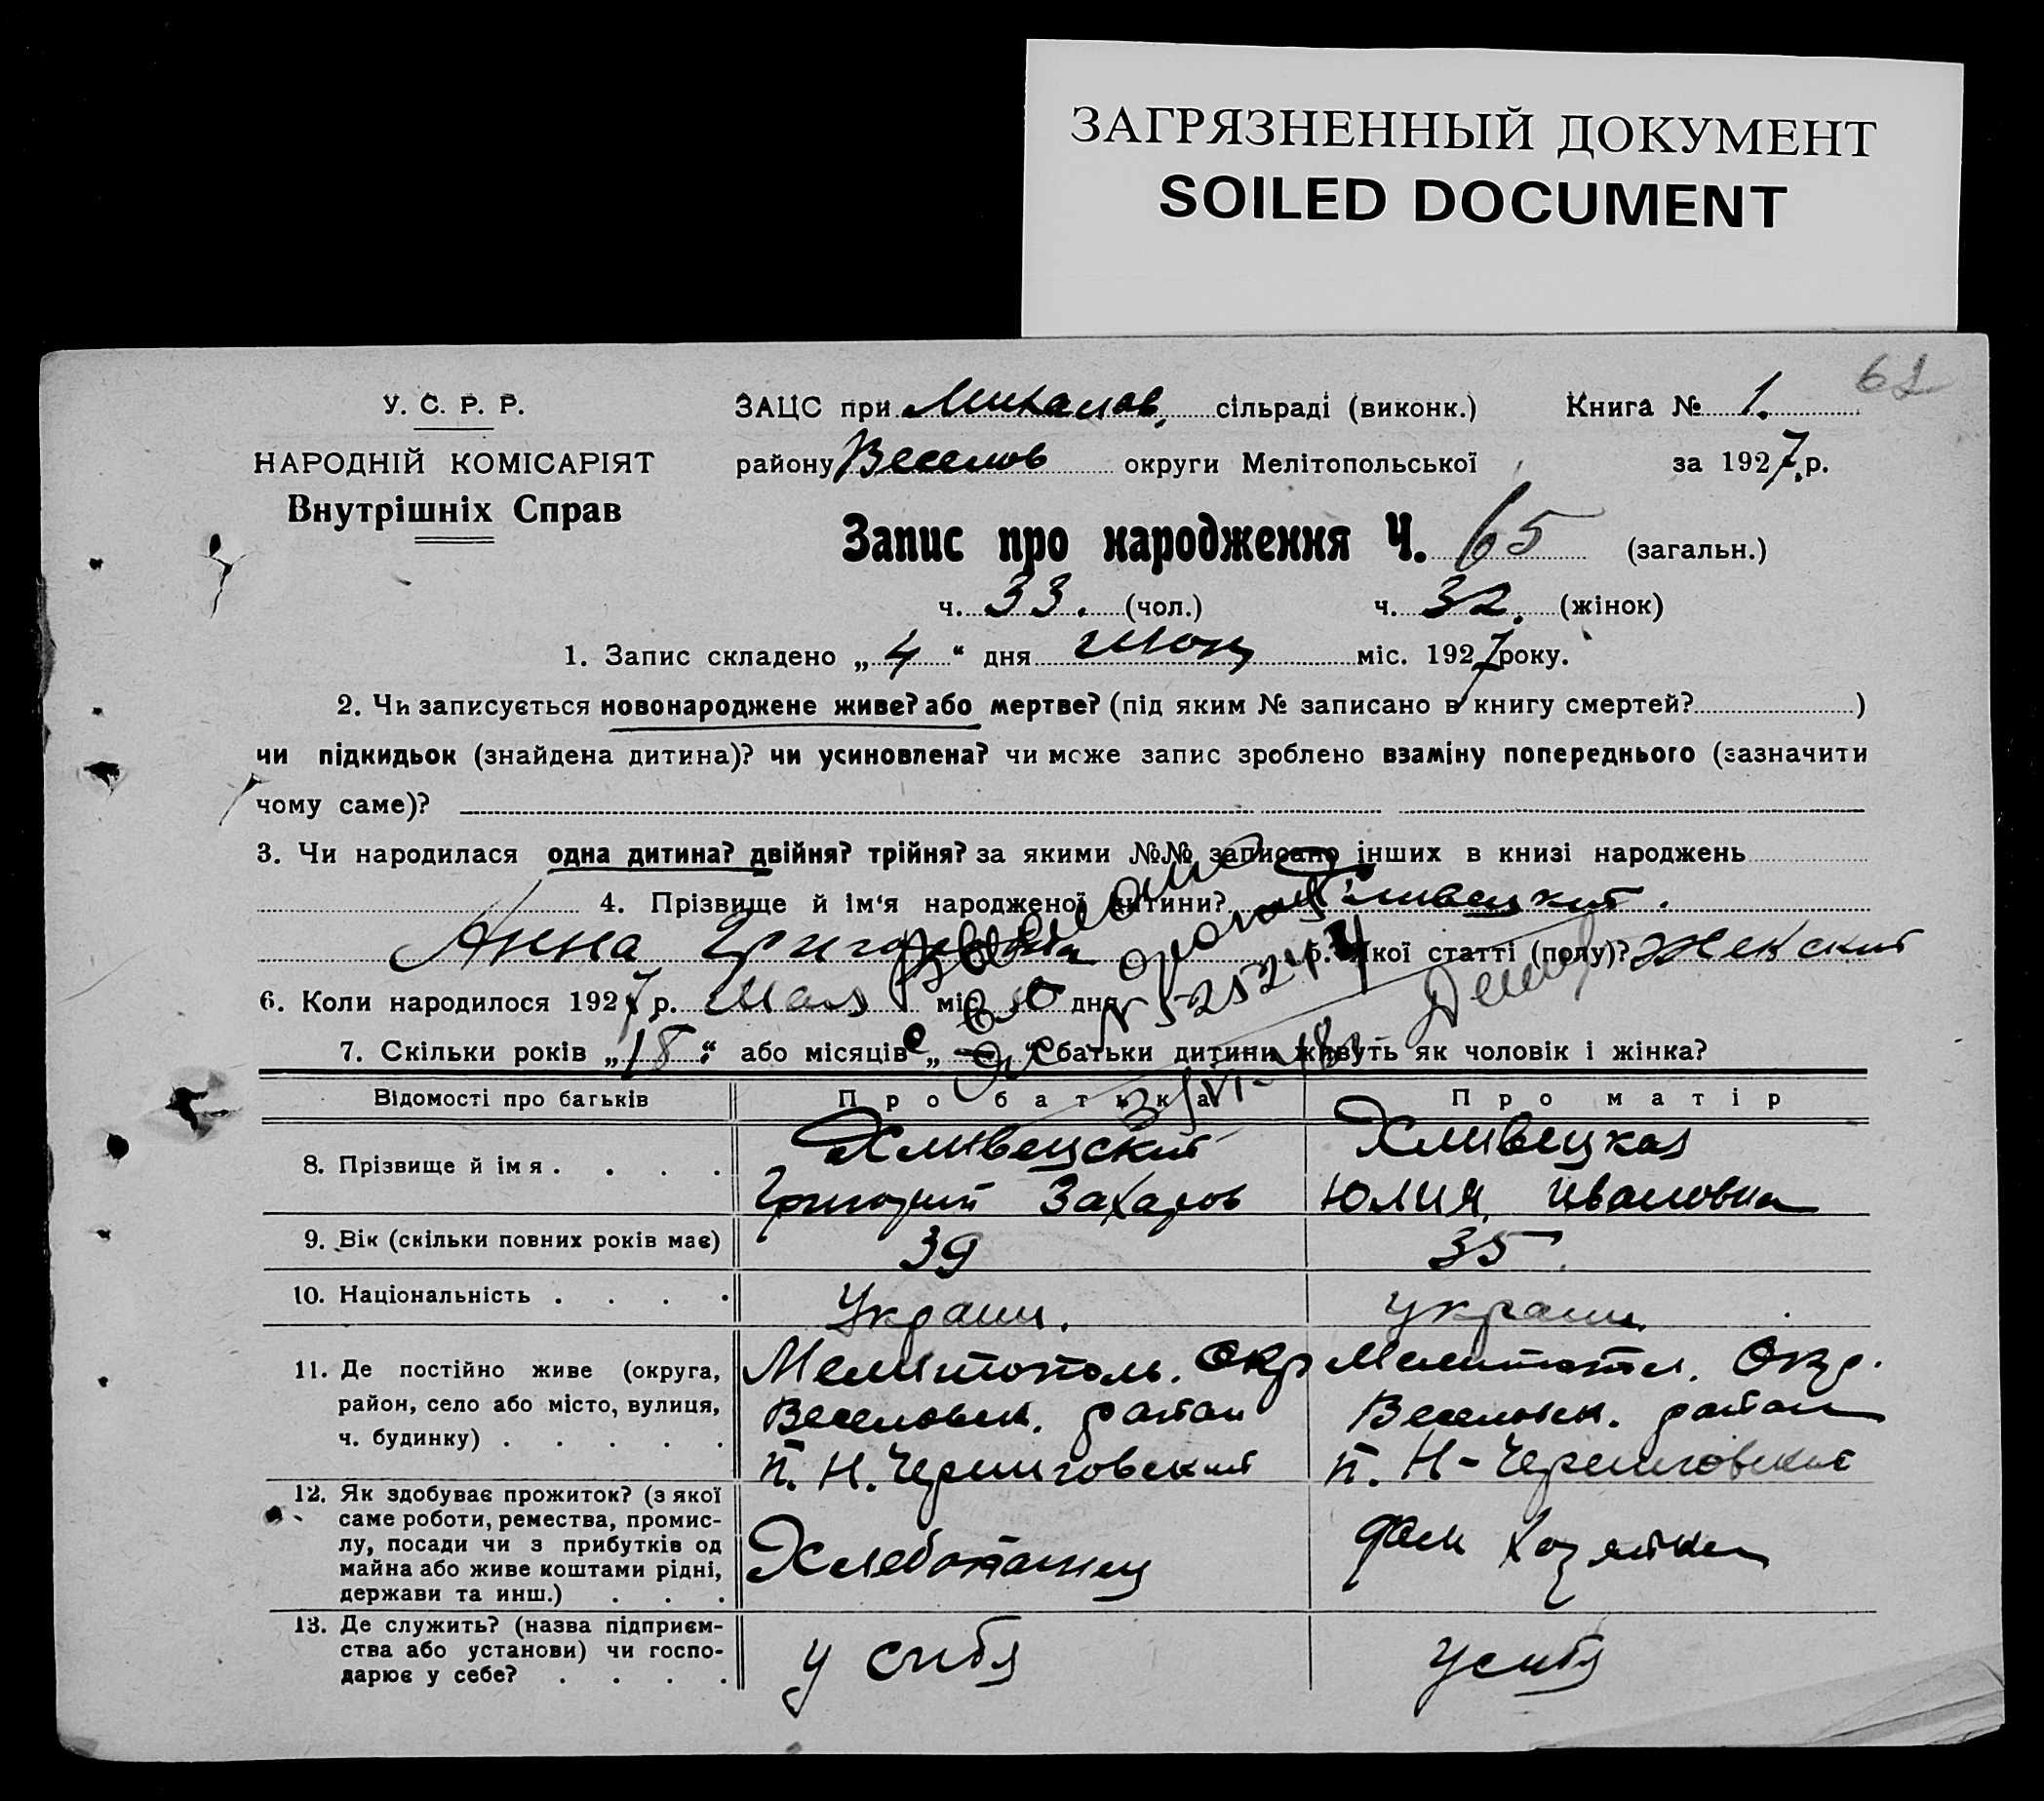 ЗАГРЯЗНЕННЫЙ ДОКУМЕНТ
SOILED DOCUMENT
61
У. С. Р. Р.
НАРОДНІЙ КОМІСАРІЯТ
Внутрішніх Справ
ЗАЦС при Михайлов. сільраді (виконк.) Книга № 1.
району Веселов округи Мелітопольської за 1927 р.
Запис про народження Ч. 65 (загальн.)
ч. 33. (чол.) ч. 32. (жінок)
1. Запис складено „ 4 “ дня міс. 1927 року.
2. Чи записується новонароджене живе? або мертве? (під яким № записано в книгу смертей? )
чи підкидьок (знайдена дитина)? чи усиновлена? чи може запис зроблено взаміну попереднього (зазначити
чому саме)?
3. Чи народилася одна дитина? двійня? трійня? за якими №№ записано інших в книзі народжень
4. Прізвище й ім‘я народженої дитини?
Анна Григоровна 5. Якої статті (полу)? Женский
6. Коли народилося 1927 р. Мая міс. дня
7. Скільки років „ 18 “ або місяців „ “ батьки дитини живуть як чоловік і жінка?
Відомості про батьків Про батька Про матір
8. Прізвище й імя . . . . Хливецский Хливецкая
Григорий Захаров Юлия Ивановна
9. Вік (скільки повних років має) 39 35
10. Національність . . . . Украин. украин.
11. Де постійно живе (округа, Мелитополь. Окр Мелитопол. Окр.
район, село або місто, вулиця, Веселовск. район Веселовск. район
ч. будинку) . . . . . п. Н. Черниговский п. Н-Черниговский
12. Як здобуває прожиток? (з якої
саме роботи, ремества, промис-
лу, посади чи з прибутків од
майна або живе коштами рідні,
держави та инш.) . . . Хлебопашец дом хозяйка
13. Де служить? (назва підприєм-
ства або установи) чи госпо-
дарює у себе? . . . . у сибя у сибя